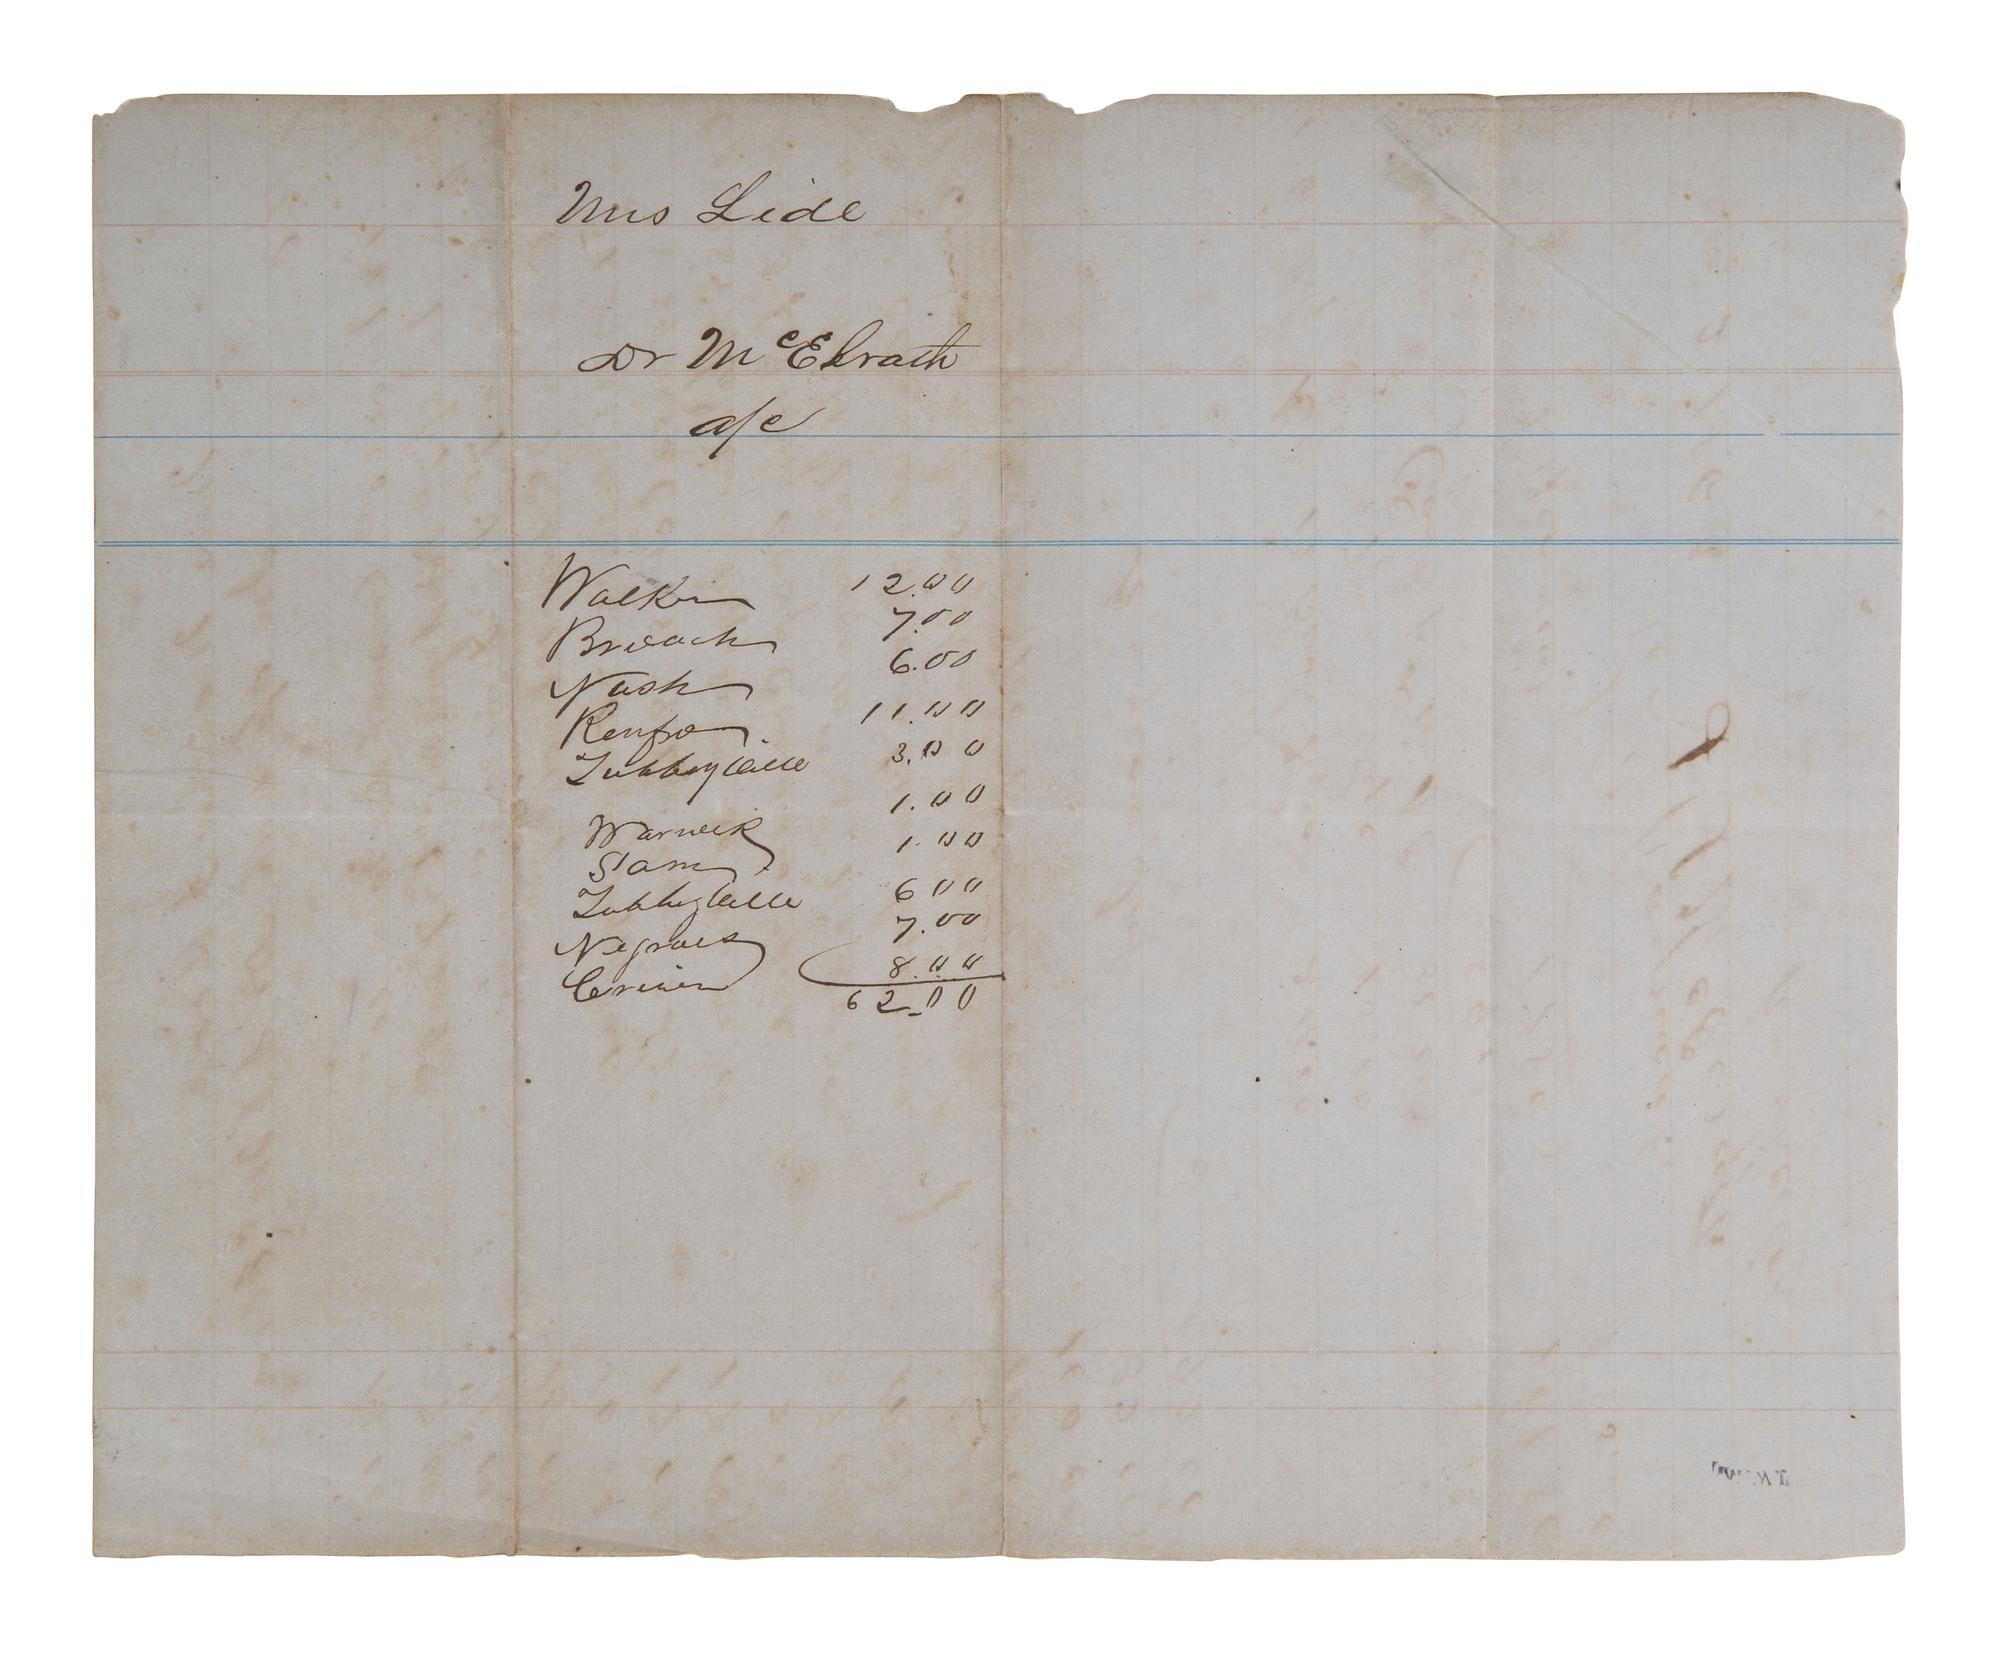 Mrs Lide
Dr McElrath
a/c
Walker 12.00
Broach 7.00
Nash 6.00
Renfro 11.00
3.00
1.00
Warwick 1.00
Sam
600
Negroes 7.00
8.00
62.00